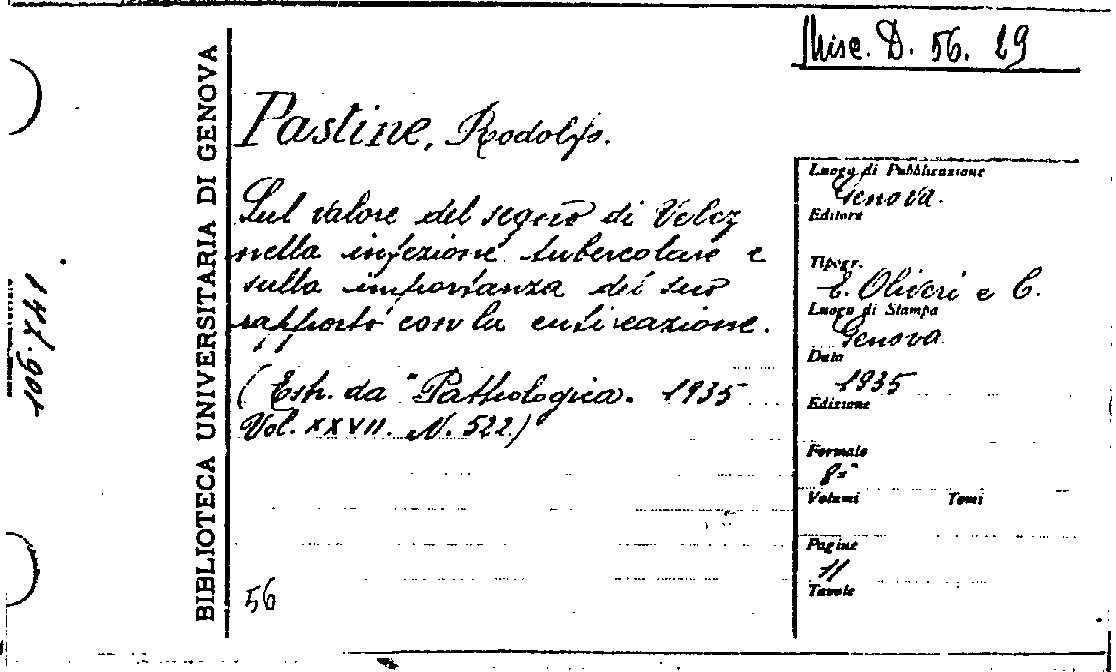 Misc. D. 56. 29
BIBLIOTECA UNIVERSITARIA DI GENOVA
Pastine, Rodolfo.
Sul valore del segno di Velez
nella infezione tubercolare e
sulla importanza del suo
rapporto con la cutireazione.
(Estr. da "Pathologica. 1935
Vol. XXVII. N. 522.)
56
Luogo di Pubblicazione
Genova.
Editore
Tipogr.
E. Oliveri e C.
Luogo di Stampa
Genova
Data
1935
Edizione
Formato
8°
Volumi Tomi
Pagine
11
Tavole
147.901